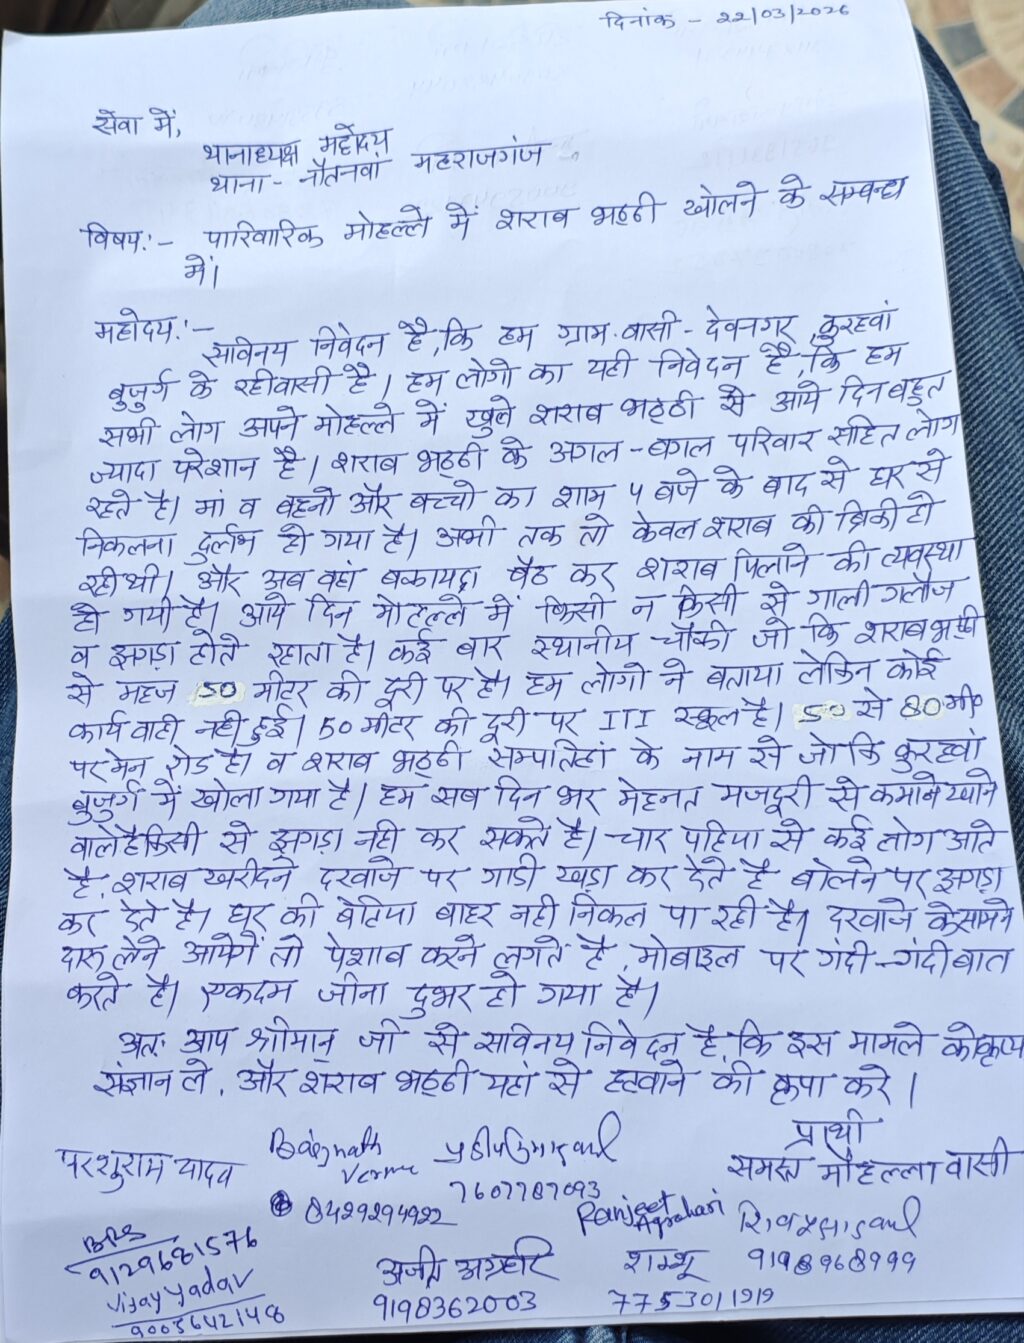 दिनांक - 22/03/2026
सेवा में,
थानाध्यक्ष महोदय
थाना - नौतनवां महराजगंज
विषय:- पारिवारिक मोहल्ले में शराब भठ्ठी खोलने के सम्बन्ध
में।
महोदय:-
सविनय निवेदन है, कि हम ग्राम-वासी - देवनगर, कुरहवां
बुजुर्ग के रहीवासी है। हम लोगो का यही निवेदन है, कि हम
सभी लोग अपने मोहल्ले में खुले शराब भठ्ठी से आये दिन बहुत
ज्यादा परेशान है। शराब भठ्ठी के अगल-बगल परिवार सहित लोग
रहते है। मां व बहनो और बच्चो का शाम 4 बजे के बाद से घर से
निकलना दुर्लभ हो गया है। अभी तक तो केवल शराब की बिक्री हो
रही थी। और अब वहां बकायदा बैठ कर शराब पिलाने की व्यवस्था
हो गयी है। आये दिन मोहल्ले में किसी न किसी से गाली गलौज
व झगड़ा होते रहता है। कई बार स्थानीय चौकी जो कि शराब भठ्ठी
से महज 50 मीटर की दूरी पर है। हम लोगो ने बताया लेकिन कोई
कार्यवाही नही हुई। 50 मीटर की दूरी पर ITI स्कूल है। 50 से 80 मी०
पर मेन रोड है। व शराब भठ्ठी के नाम से जो कि कुरहवां
बुजुर्ग में खोला गया है। हम सब दिन भर मेहनत मजदूरी से कमाने खाने
वाले है किसी से झगड़ा नही कर सकते है। चार पहिया से कई लोग आते
है, शराब खरीदने दरवाजे पर गाडी खड़ा कर देते है बोलने पर झगड़ा
कर देते है। घर की बेटिया बाहर नही निकल पा रही है। दरवाजे के सामने
दारू लेने आयेगें तो पेशाब करने लगते है, मोबाइल पर गंदी-गंदी बात
करते है। एकदम जीना दुभर हो गया है।
अतः आप श्रीमान् जी से सविनय निवेदन है, कि इस मामले को
संज्ञान ले, और शराब भठ्ठी यहां से हटवाने की कृपा करे।
प्रार्थी
समस्त मोहल्ला वासी
परशुराम यादव
Baijnath
Verma
8429294922
7607787093
Ranjeet
Agrahari
9198968999
9129681576
Vijay Yadav
9003642148
अजीत अग्रहरि
9198362003
शम्भू
7753011919